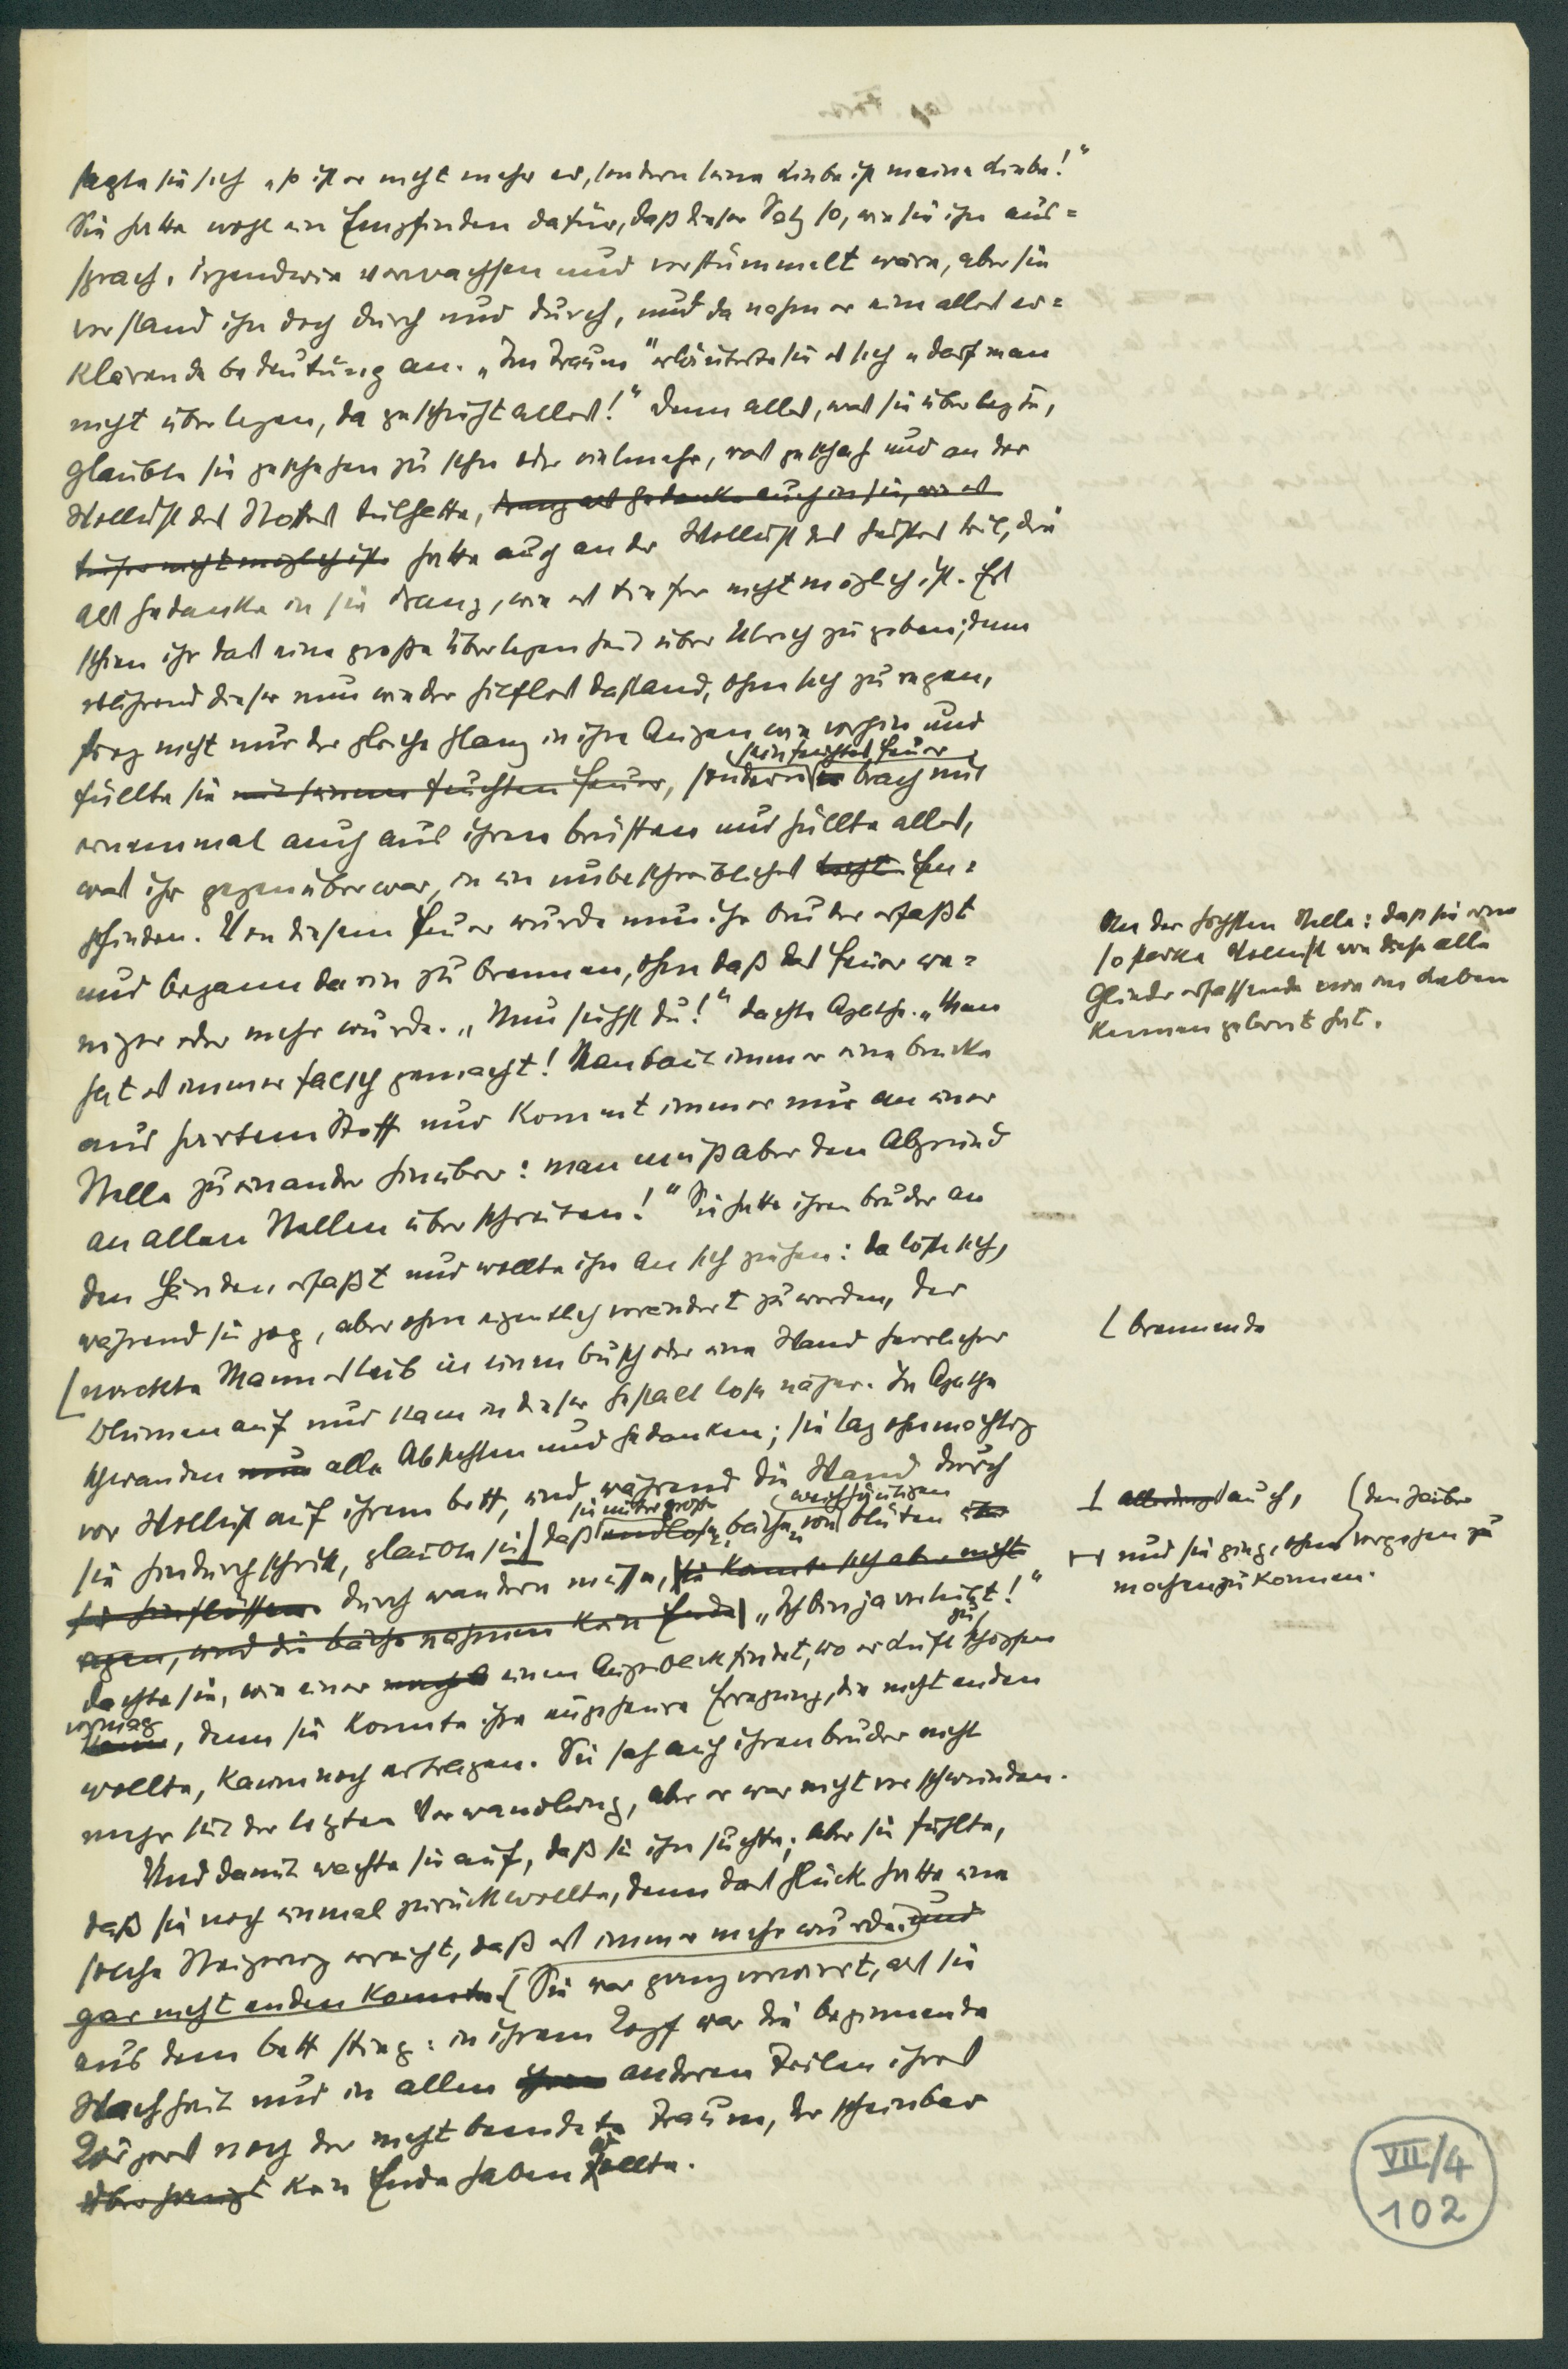 sagte sie sich „so ist er nicht mehr er, sondern seine Liebe ist meine Liebe!“
Sie hatte wohl ein Empfinden dafür, daß dieser Satz so, wie sie ihn aus=
sprach, irgendwie verwachsen und verstümmelt wäre, aber sie
verstand ihn doch durch und durch, und da nahm er eine alles er=
klärende Bedeutung an. „Im Traum“ erläuterte sie es sich „darf man
nicht überlegen, da geschieht alles!“ Denn alles, was sie überlegte,
glaubte sie geschehen zu sehn oder vielmehr, was geschah und an der
Wollust des Stoffes teilhatte, drang als Gedanke auch in sie, wie es
tiefer nicht möglich ist. hatte auch an der Wollust des Geistes teil, die
als Gedanke in sie drang, wie es tiefer nicht möglich ist. Es
schien ihr das eine große Überlegenheit über Ulrich zu geben; denn
während dieser nun wieder hilflos dastand, ohne sich zu regen,
stieg nicht nur der gleiche Glanz in ihre Augen wie vorhin und
sein feuchtes Feuer
füllte sie mit seinem feuchten Feuer, sondern es brach mit
einemmal auch aus ihren Brüsten und hüllte alles,
was ihr gegenüber war, in ein unbeschreibliches Em=
pfinden. Von diesem Feuer wurde nun ihr Bruder erfaßt
und begann darin zu brennen, ohne daß das Feuer we=
niger oder mehr wurde. „Nun siehst du!“ dachte Agathe. „Man
hat es immer falsch gemacht! Man baut immer eine Brücke
aus hartem Stoff und kommt immer nur an einer
Stelle zueinander hinüber: man muß aber den Abgrund
an allen Stellen überschreiten!“ Sie hatte ihren Bruder an
den Händen erfaßt und wollte ihn an sich ziehen: da löste sich,
während sie zog, aber ohne eigentlich verändert zu werden, der
[nackte Mannesleib in einen Busch oder eine Wand herrlicher
Blumen auf und kam in dieser Gestalt lose näher. In Agathe
schwanden nun alle Absichten und Gedanken; sie lag ohnmächtig
vor Wollust auf ihrem Bett, und während die Wand durch
sie
weichhäutigen
sie hindurchschritt, glaubte sie daß endlose Bäche von Blüten
durchwandern müsse, sie konnte sich aber nicht
regen, und die Bäche nahmen kein Ende „Ich bin ja verliebt!“
zu
dachte sie, wie einer einen Augenblick findet, wo er Luft schöpfen
vermag
kann, denn sie konnte ihre ungeheure Erregung, die nicht enden
wollte, kaum noch ertragen. Sie sah auch ihren Bruder nicht
mehr seit der letzten Verwandlung, aber er war nicht verschwunden.
Und damit wachte sie auf, daß sie ihn suchte; aber sie fühlte,
daß sie noch einmal zurückwollte, denn das Glück hatte eine
solche Steigerung erreicht, daß es immer mehr wurde und
gar nicht enden konnte. Sie war ganz verwirrt, als sie
aus dem Bett stieg: in ihrem Kopf war die beginnende
Wachheit und in allen ihren anderen Teilen ihres
Körpers noch der nicht beendete Traum, der scheinbar
überhaupt kein Ende haben wollte.
An der höchsten Stelle: daß sie eine
so starke Wollust wie diese alle
Glieder erfassende nie im Leben
kennen gelernt hat.
[brennende
auch,
den Zeiber
und sie ging, ohne vorgehen zu
machen zu können.
VII/4
102